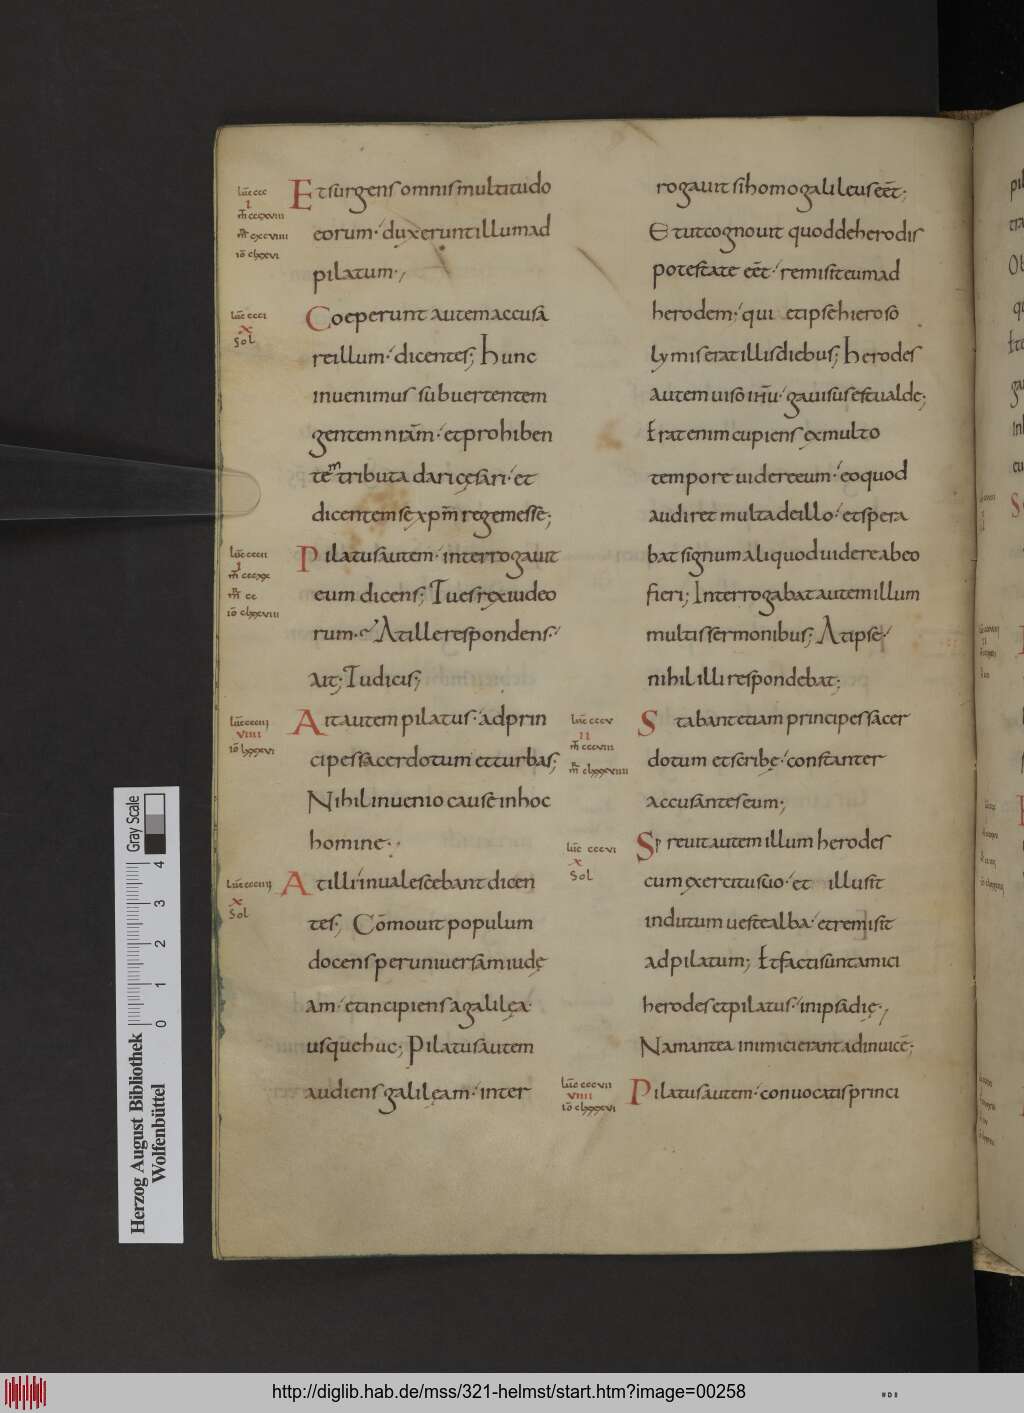 Et surgens omnis multitudo
eorum· duxerunt illum ad
pilatum·,
Coeperunt autem accusa
re illum· dicentes; Hunc
invenimus subvertentem
gentem nrām· et prohiben
tem tributa dari cęsari· et
dicentem sē xpm̄ regem esse;
Pilatus autem· interrogavit
eum dicens; Tu es rex iudeo
rum· At ille respondens·
ait; Tu dicis;
Ait autem pilatus· ad prin
cipes sacerdotum et turbas;
Nihil invenio cause in hoc
homine·
At illi invalescebant dicen
tes; Cōmovit populum
docens per universam iudę
am· et incipiens a galilęa·
usque huc; Pilatus autem
audiens galilęam· inter
rogavit si homo galileus eēt;
Et ut cognovit quod de herodis
potestate eēt· remisit eum ad
herodem· qui et ipse hieroso
lymis erat illis diebus; Herodes
autem viso ihū· gavisus est valde;
Erat enim cupiens ex multo
tempore videre eum· eo quod
audiret multa de illo· et spera
bat signum aliquod videre ab eo
fieri; Interrogabat autem illum
multis sermonibus; At ipse·
nihil illi respondebat;
Stabant etiam principes sacer
dotum et scribę· constanter
accusantes eum;
Sprevit autem illum herodes
cum exercitu suo· et illusit
indutum veste alba· et remisit
ad pilatum; Et facti sunt amici
herodes et pilatus· in ipsa die·,
Nam antea inimici erant ad invicē;
Pilatus autem· convocatis princi
luc ccc
I
luc ccci
X
Sol
luc cccii
I
luc ccciii
VIIII
luc ccciiij
X
Sol
luc cccv
II
luc cccvi
X
Sol
luc cccvii
VIIII
Gray Scale
4
3
2
1
0
Herzog August Bibliothek
Wolfenbüttel
http://diglib.hab.de/mss/321-helmst/start.htm?image=00258